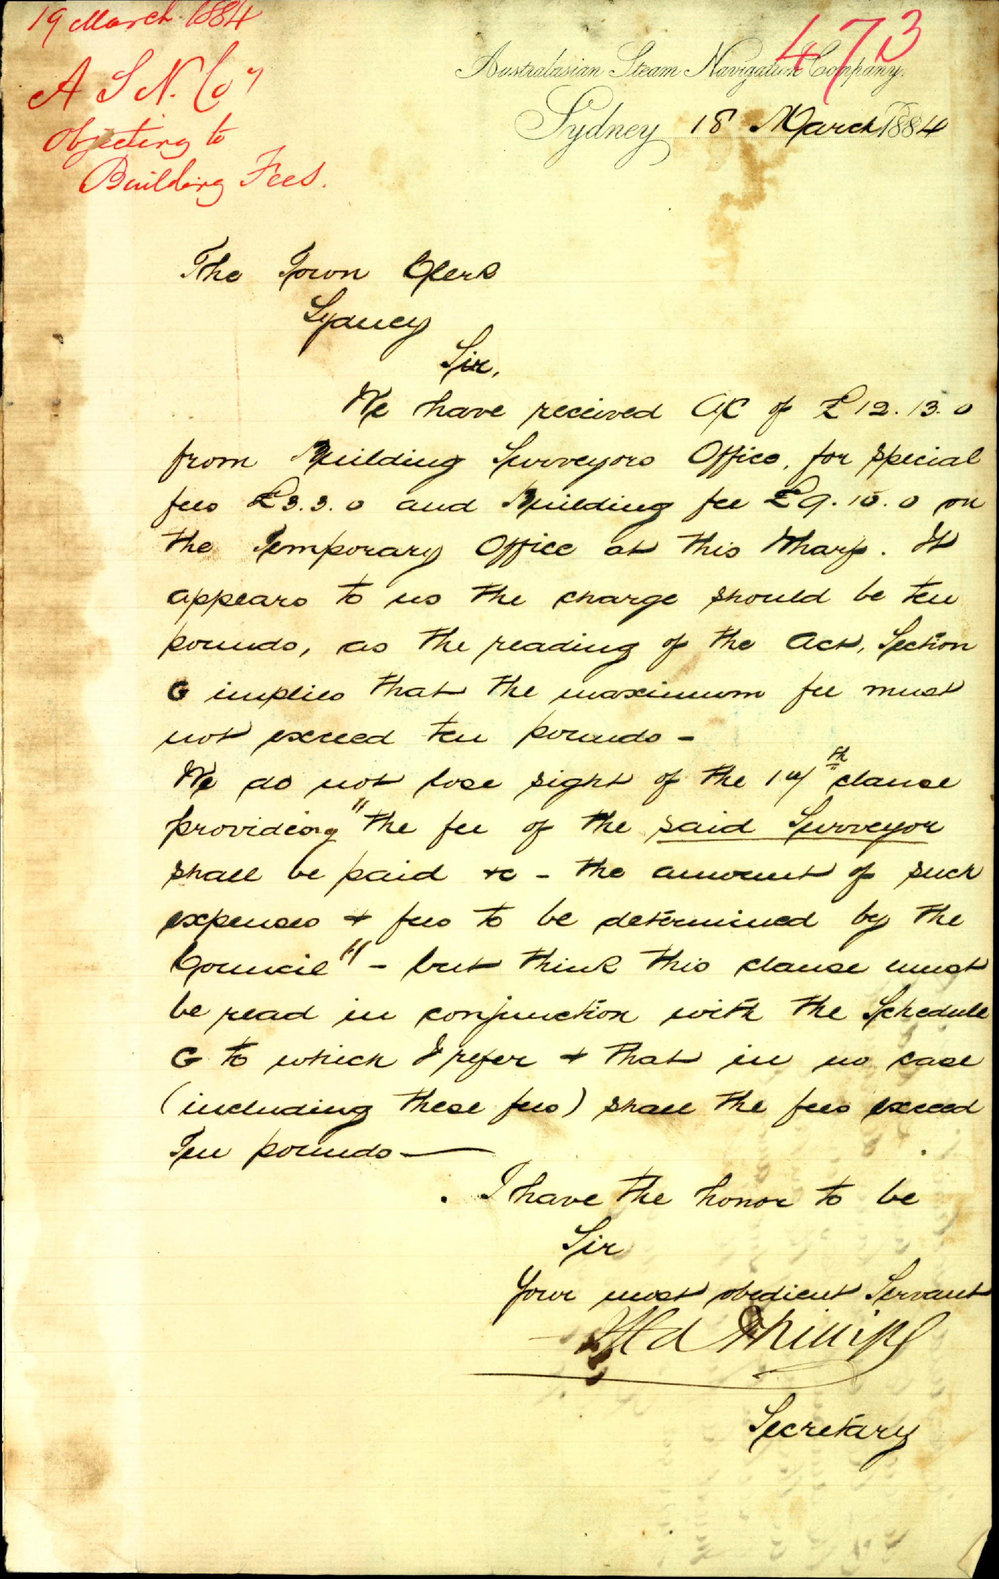 19 March 1884
473
A S N. Coy
Objecting to
Building Fees.
Australasian Steam Navigation Company.
Sydney 18 March 1884
The Town Clerk
Sydney
Sir,
We have received A/C of £12.13.0
from Building Surveyors Office, for special
fees £3.3.0 and Building fee £9.10.0 on
the Temporary Office at this Wharf. It
appears to us the charge should be ten
pounds, as the reading of the Act, Section
G implies that the maximum fee must
not exceed ten pounds -
We do not lose sight of the 14th clause
providing "the fee of the said Surveyor
shall be paid &c - the amount of such
expenses & fees to be determined by the
Council" - but think this clause must
be read in conjunction with the Schedule
G to which I refer & that in no case
(including these fees) shall the fees exceed
Ten pounds —
I have the honor to be
Sir
Your most obedient Servant
Phillips
Secretary